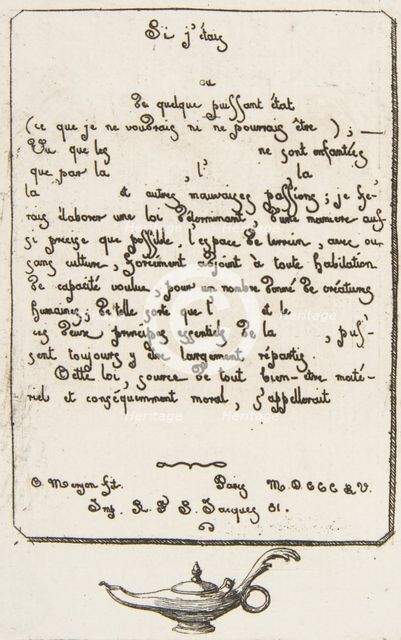 Si j'étais
ou
de quelque puissant état
(ce que je ne voudrais ni ne pourrais être) ; —
Vu que les ne sont enfantées
que par la , l' , la
la et autres mauvaises passions ; je fe-
rais élaborer une loi déterminant, d'une manière aus-
si précise que possible, l'espace de terrain, avec ou
sans culture, forcément adjoint à toute habitation
de capacité voulue, pour un nombre donné de créatures
humaines ; de telle sorte que l' et le
ces deux principes essentiels de la , puis-
sent toujours y être largement répartis.
Cette loi, source de tout bien-être maté-
riel et conséquemment moral, s'appellerait
C. Meryon fit. Paris M.D.CCC.L.V.
Imp. R. N. S. Jacques 81.
Heritage
Heritage
Heritage
Heritage
Heritage